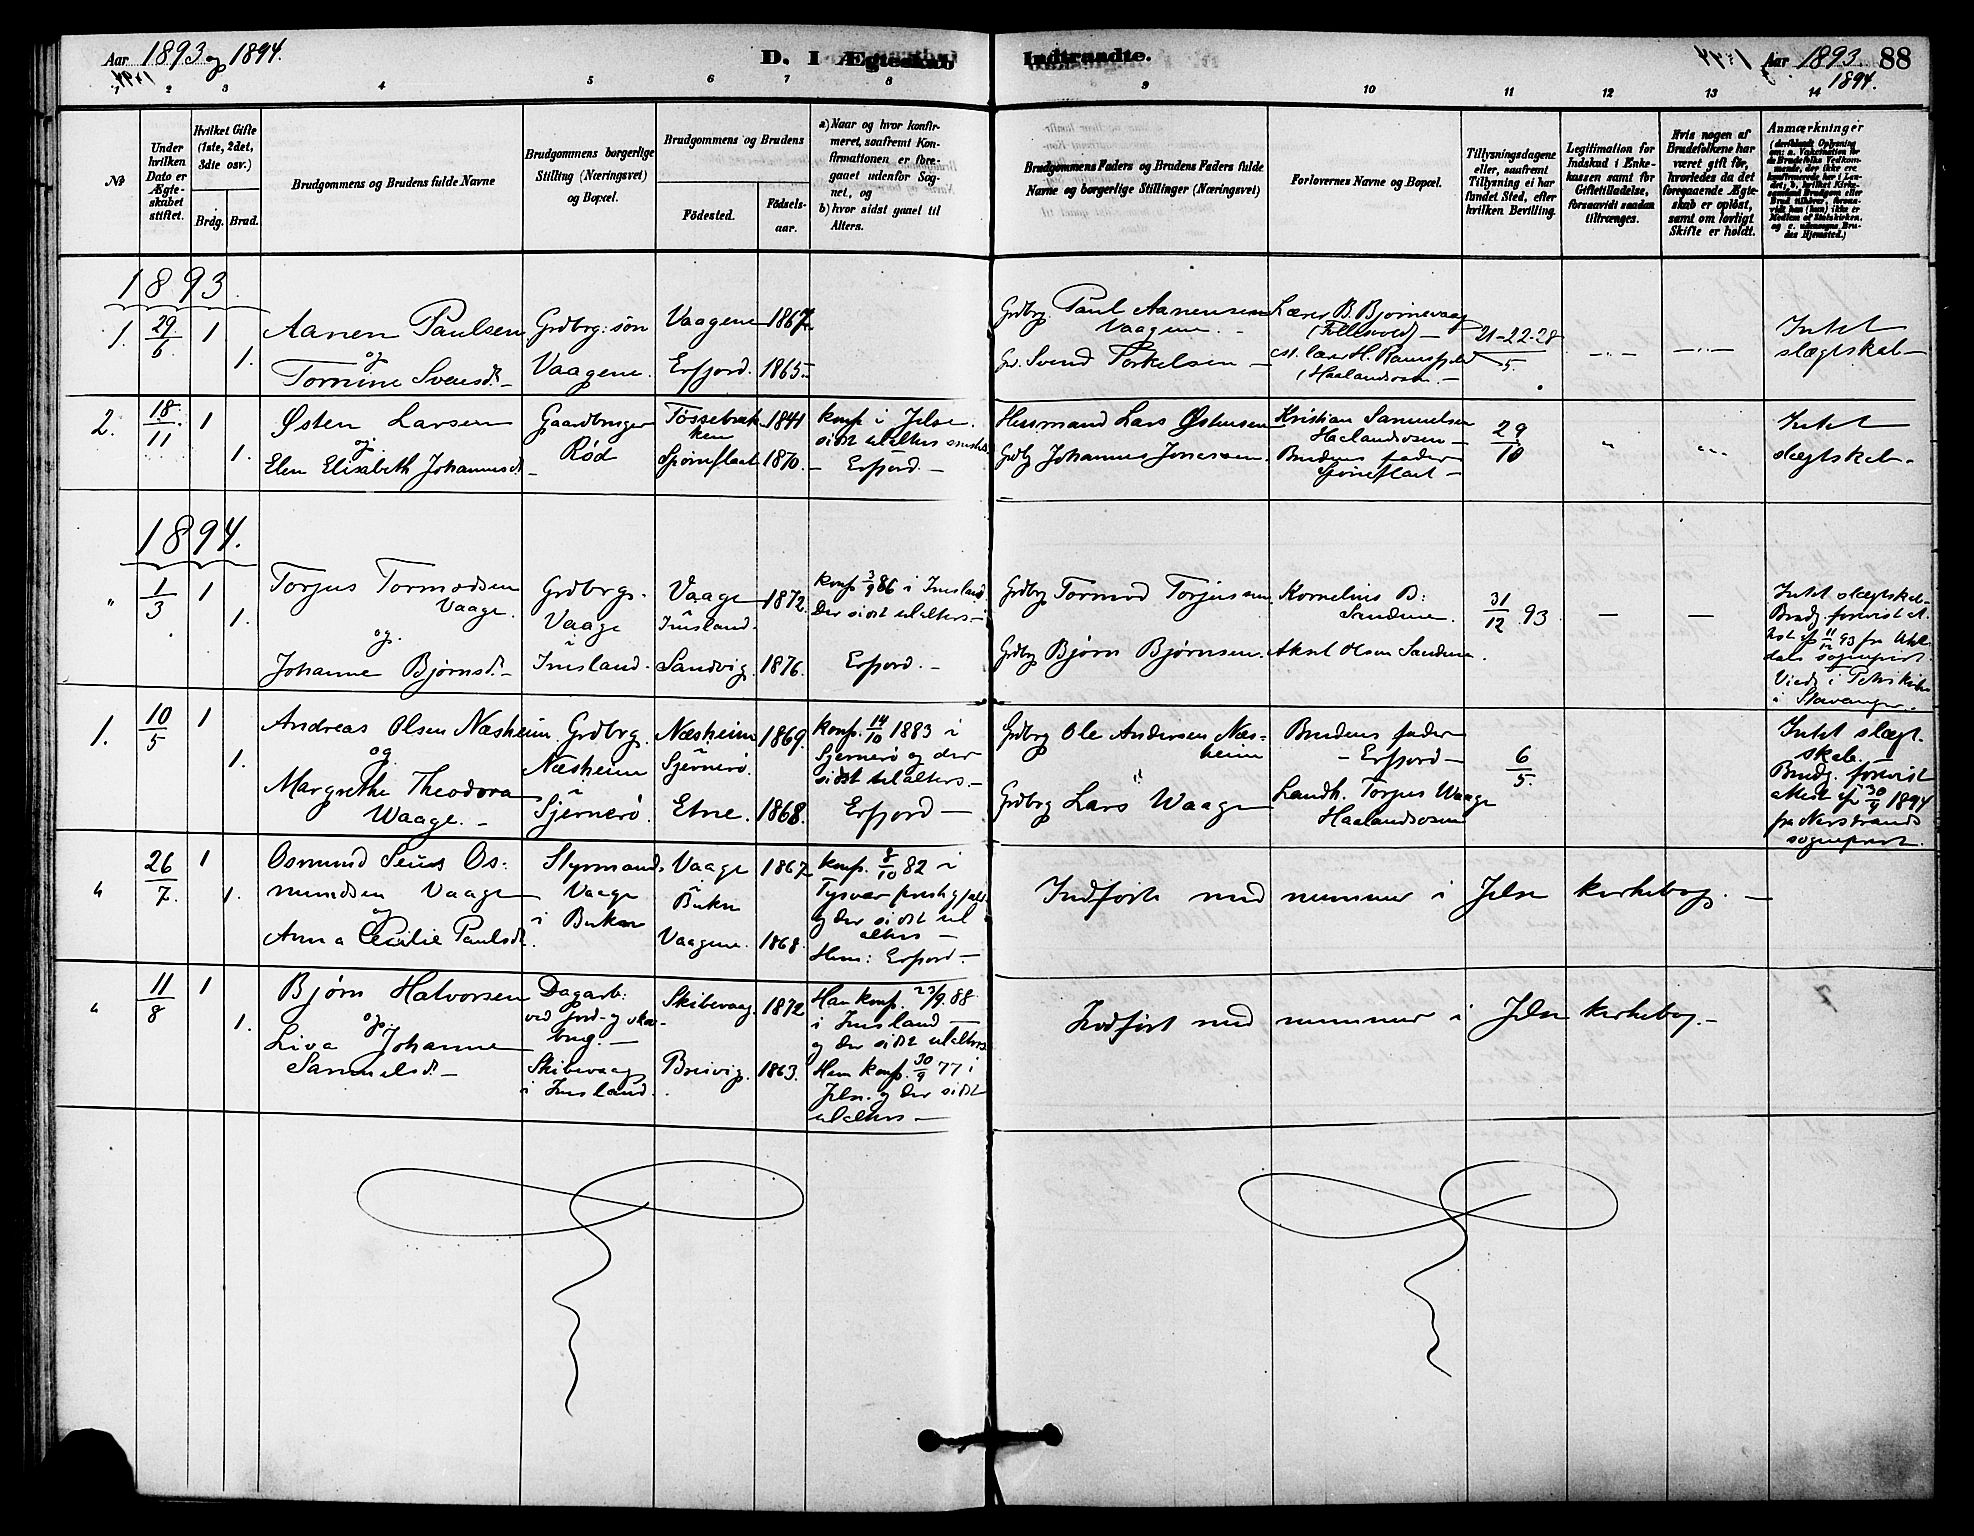 Aar 1893 og 1894.
D. I Ægteskab
Indtraadte.
Aar 1893
1894.
88
2 3 4 5 6 7 8
9 10 11 12 13 14
No
Under hvilken Dato er Ægteskabet stiftet.
Hvilket Gifte (1ste, 2det, 3die osv.)
Brdg. Brud.
Brudgommens og Brudens fulde Navne
Brudgommens borgerlige Stilling (Næringsvei) og Bopæl.
Brudgommens og Brudens
Födested.
Födselsaar.
a) Naar og hvor konfirmeret, saafremt Konfirmationen er foregaaet udenfor Sognet, og
b) hvor sidst gaaet til Alters.
Brudgommens Faders og Brudens Faders fulde Navne og borgerlige Stillinger (Næringsvei)
Forlovernes Navne og Bopæl.
Tillysningsdagene eller, saafremt Tillysning ei har fundet Sted, efter hvilken Bevilling.
Legitimation for Indskud i Enkekassen samt for Giftetilladelse, forsaavidt saadan tiltrænges.
Hvis nogen af Brudefolkene har været gift för, hvorledes da det foregaaende Ægteskab er oplöst, samt om lovligt Skifte er holdt.
Anmærkninger
1893
1. 29/6. 1 1.
Aanen Paulsen
og
Tornine Svensd. –
Grdbrg: søn
Vaagene.
Vaagene 1867
Erfjord. 1865
Grdbrg. Paul Aanensen
Vaagene. –
Svend Torkelsen –
Lærer B. Bjørnevaag
H. Ramsfjeld
Haalandsosen. –
21-22-28
5.
Intet
slægtskab –
2. 18/11 1 1.
Østen Larsen
og
Elen Elisabeth Johannesd.
Gaardbruger
Rød
1841
1870.
konf. i Jelse.
sidst til alters
– Erfjord. –
Husmand Lars Østensen
Grdbrg Johannes
Kristian Samuelsen
Haalandsosen –
Brudens fader
29
10
Intet
slægtskab.
1894.
" 1/3 1 1.
Torjus Tormodsen
Vaage.
og.
Johanne Bjørnsd. –
Grdbrg.
Vaage
i
Imsland.
Vaage 1872.
Imsland.
Sandvig. 1876.
konf. 3/9 86 i Imsland.
Der sidst til alters –
Erfjord. –
Grdbrg Tormod Torjusen
Grdbrg Bjørn Bjørnsen.
Kornelius B.
Sandene.
Aksel Olsen Sandene.
31/12 93
Intet slægtskab
Brudg. forevist
11/12 93 fra
sogneprest.
Viede i Petrikirke
i Stavanger.
1. 10/5 1 1.
Andreas Olsen Næsheim
og
Margrethe Theodora
Waage. –
Grdbrg.
Næsheim
i
Sjernerö.
Næsheim 1869.
Sjernerö.
Etne. 1868.
konf. 14/10 1883 i
Sjernerö og der
sidst til alters –
Erfjord –
Grdbrg Ole Andersen Næsheim
Grdbrg Lars Waage
Brudens fader
– Erfjord –
Landh. Torjus Waage
Haalandsosen
6
5.
Intet slægtskab. –
Brudg. forevist
attest af 30/4 1894
fra Nerstrands
sogneprest.
" 26/7. 1 1.
Osmund Osmundsen Vaage
og
Anna Cecilie Paulsd.
Styrmand
Vaage
i Bukn
Vaage 1867
i
Bukn
Vaagene. 1868.
konf. 8/10 82 i
Tysvær
og der sidst til
alters –
Hun: Erfjord –
Indført med nummer i Jelse kirkebog. –
" 11/8 1 1.
Bjørn Halvorsen
og
Liva Johanne
Samuelsd. –
Dagarb.
ved jord- og skovbrug. –
Skibevaag
i Imsland.
Skibevaag. 1872
Breivig. 1863.
Han konf. 23/9.88
i Imsland –
og der sidst til alters
Hun konf. 30/9 77 i
Jelse og der sidst
til alters –
Indført med nummer i Jelse kirkebog. –